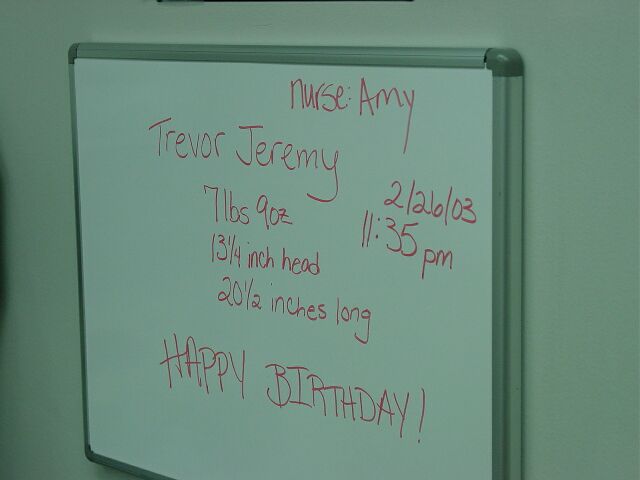 nurse: Amy
Trevor Jeremy
7lbs 9oz
2/26/03
13 1/4 inch head
11:35 pm
20 1/2 inches long
HAPPY BIRTHDAY!